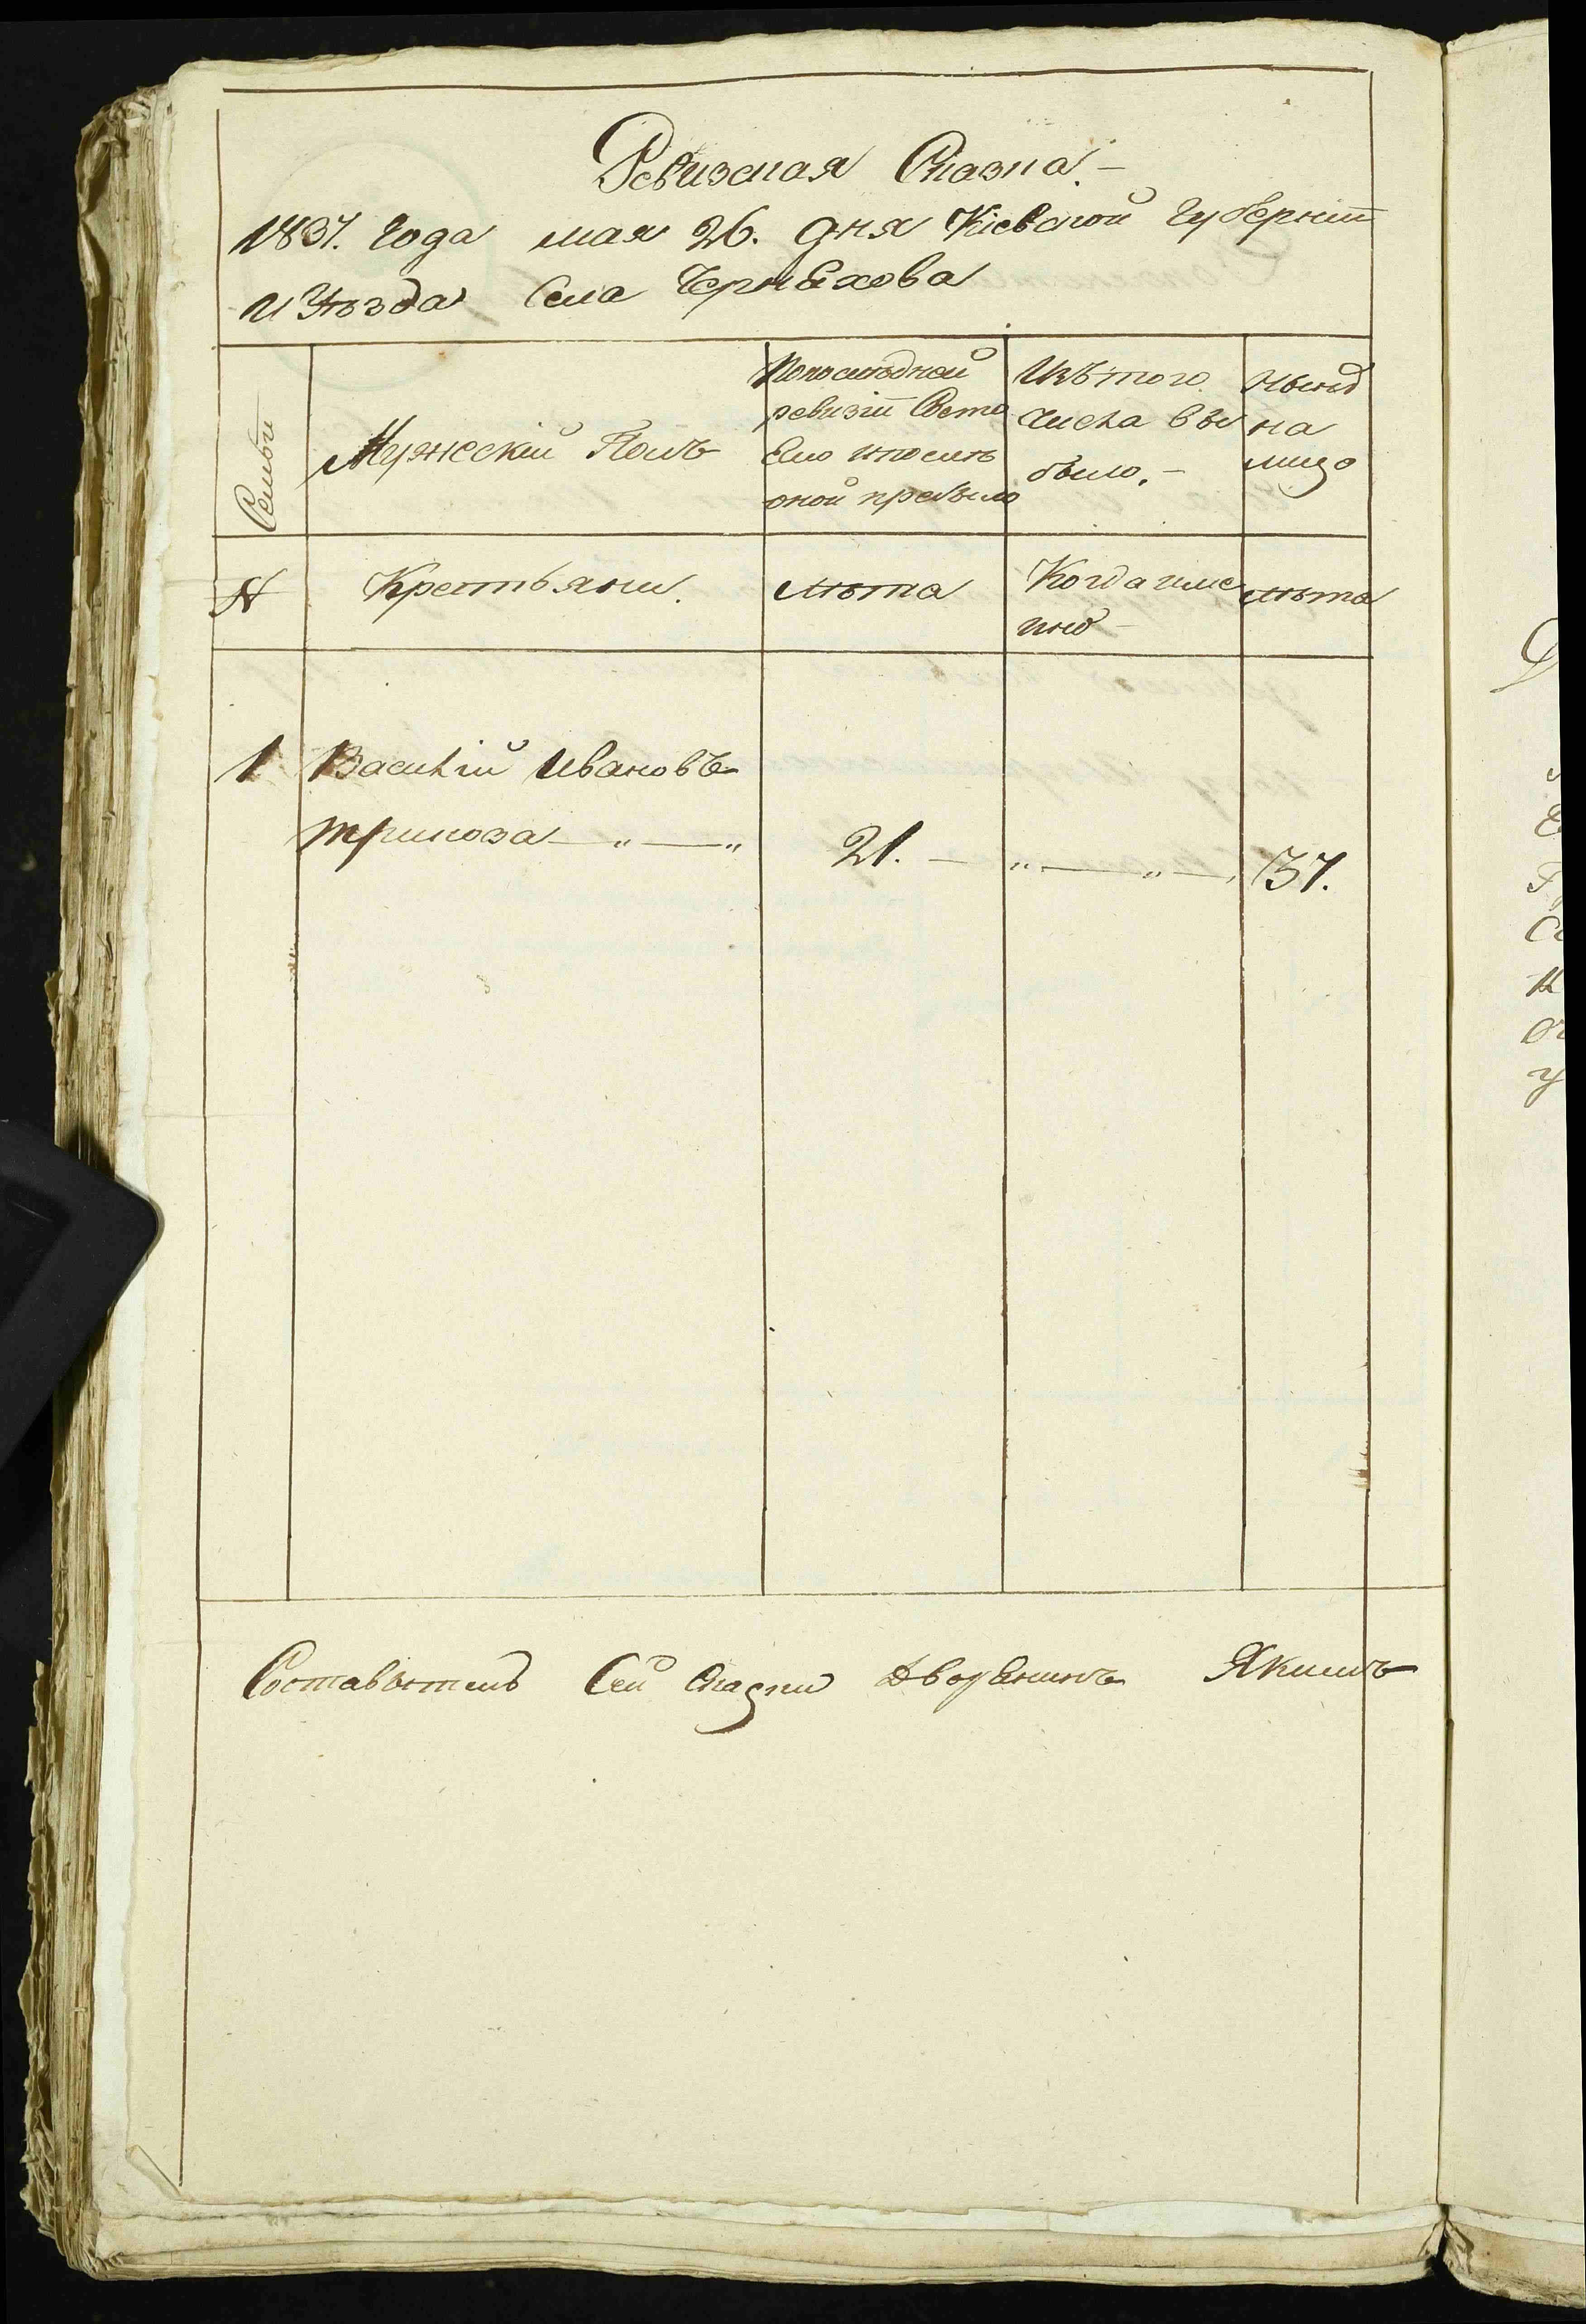 Ревизская Сказка. –
1837. года мая 26. дня Кіевской губерніи
и Уѣзда Села Черняхова
Семьи
Мужескій Полъ
Попослѣдней ревизіи Состо
яло ипослѣ
оной прибыло
Изътого числа вы
было. –
Нынѣ на лицо
N
Крестьяни.
лѣта
Когда име
нно –
лѣта
1 Василій Ивановъ
трикоза — „ — „ 21. — „ — „ — 37.
Составѣтель Сей Сказки Дворянинъ Якимъ